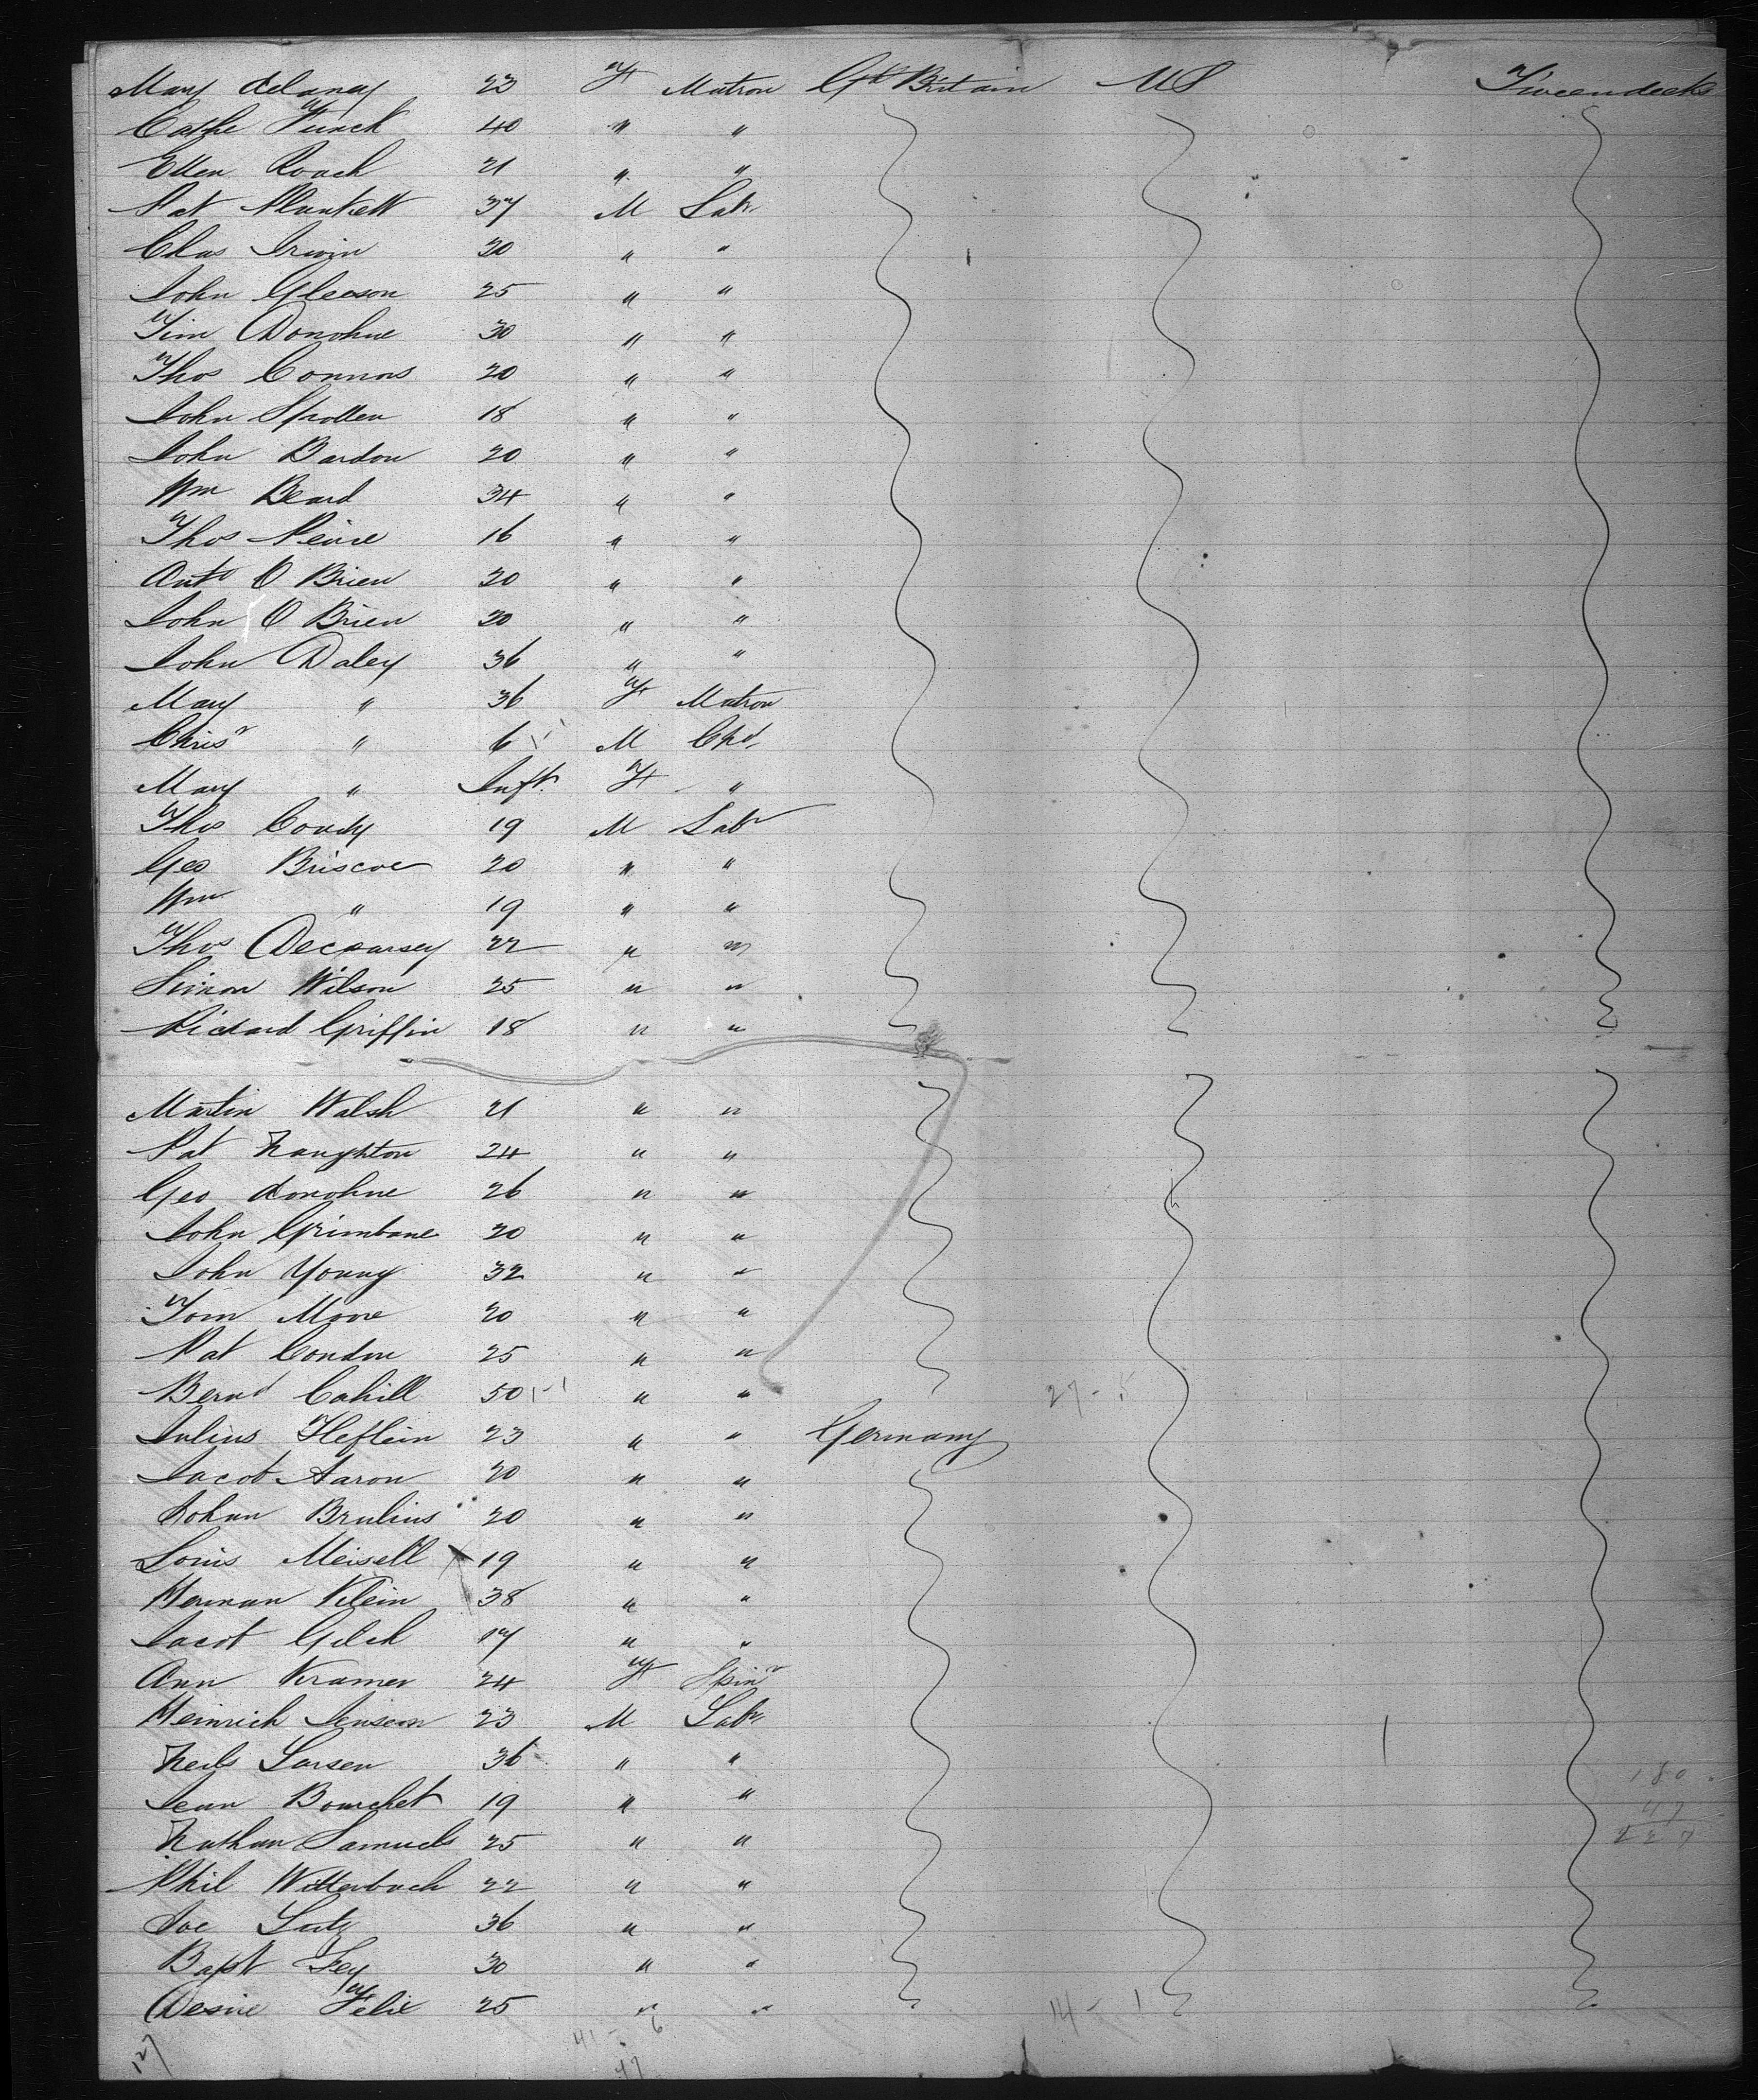 Mary Delanay 23 F Matron Gt Britain US Tweendecks
Cathe Funck 40 " "
Ellen Roach 21 " "
Pat Plunkett 37 M Labr
Chas Irwin 30 " "
John Gleeson 25 " "
Tim Donohue 30 " "
Thos Connors 20 " "
John 18 " "
John Bardon 20 " "
Wm Beard 34 " "
Thos Peirce 16 " "
Anto O Brien 20 " "
John O Brien 20 " "
John Daley 36 " "
Mary " 36 F Matron
Chrisr " 6 M Chd
Mary " Inft. F "
Thos Condy 19 M Labr
Geo Briscoe 20 " "
Wm " 19 " "
Thos Decoursey 22 " "
Simon Wilson 25 " "
Richard Griffin 18 " "
Martin Walsh 21 " "
Pat Naughton 24 " "
Geo Donohue 26 " "
John Grimbane 20 " "
John Young 32 " "
Tom Moore 20 " "
Pat Condon 25 " "
Bernd Cahill 50 " " 27 -
Julius Heflein 23 " " Germany
Jacob Aaron 20 " "
Johan Brulius 20 " "
Louis Meisell 19 " "
Herman Klein 38 " "
Jacob Gilch 17 " "
Ann Kramer 24 F Spinr
Heinrich Jensen 23 M Labr
Neils Larsen 36 " "
Jean Bourchet 19 " " 180
Nathan Samuels 25 " " 47
227
Phil Witterbach 22 " "
Joe Lutz 36 " "
Bapt Fey 30 " "
Desire Felix 25 " " 14 - 1
127 41 - 6
47